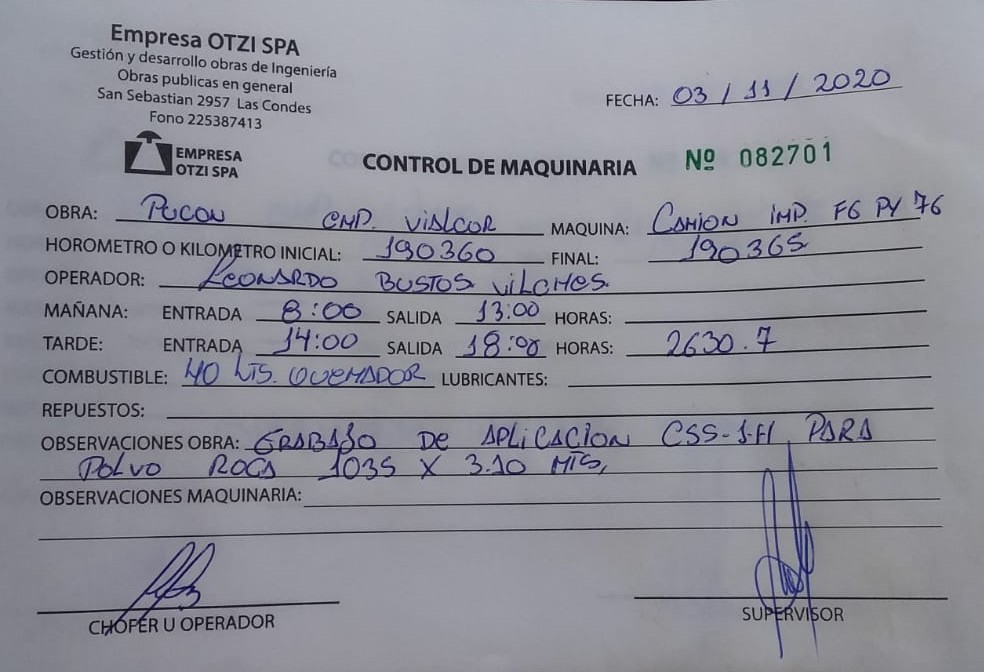 Empresa OTZI SPA
Gestión y desarrollo obras de Ingeniería
Obras publicas en general
San Sebastian 2957 Las Condes
Fono 225387413
EMPRESA
OTZI SPA
FECHA: 03 / 11 / 2020
CONTROL DE MAQUINARIA Nº 082701
OBRA: PUCON EMP. VIALCOR MAQUINA: CAMION IMP. FG PY 76
HOROMETRO O KILOMETRO INICIAL: 190360 FINAL: 190365
OPERADOR: LEONARDO BUSTOS VILCHES.
MAÑANA: ENTRADA 8:00 SALIDA 13:00 HORAS:
TARDE: ENTRADA 14:00 SALIDA 18:00 HORAS: 2630.7
COMBUSTIBLE: 40 LTS. QUEMADOR LUBRICANTES:
REPUESTOS:
OBSERVACIONES OBRA: TRABAJO DE APLICACION CSS-1-H PARA
POLVO ROCA 1035 X 3.10 MTS,
OBSERVACIONES MAQUINARIA:
CHOFER U OPERADOR SUPERVISOR